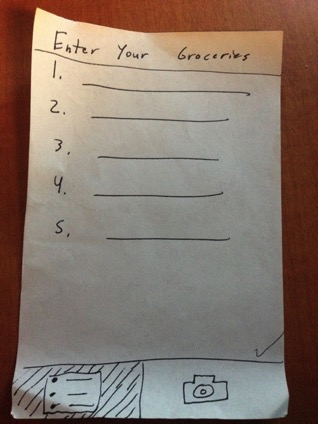 Enter Your Groceries
1.
2.
3.
4.
5.